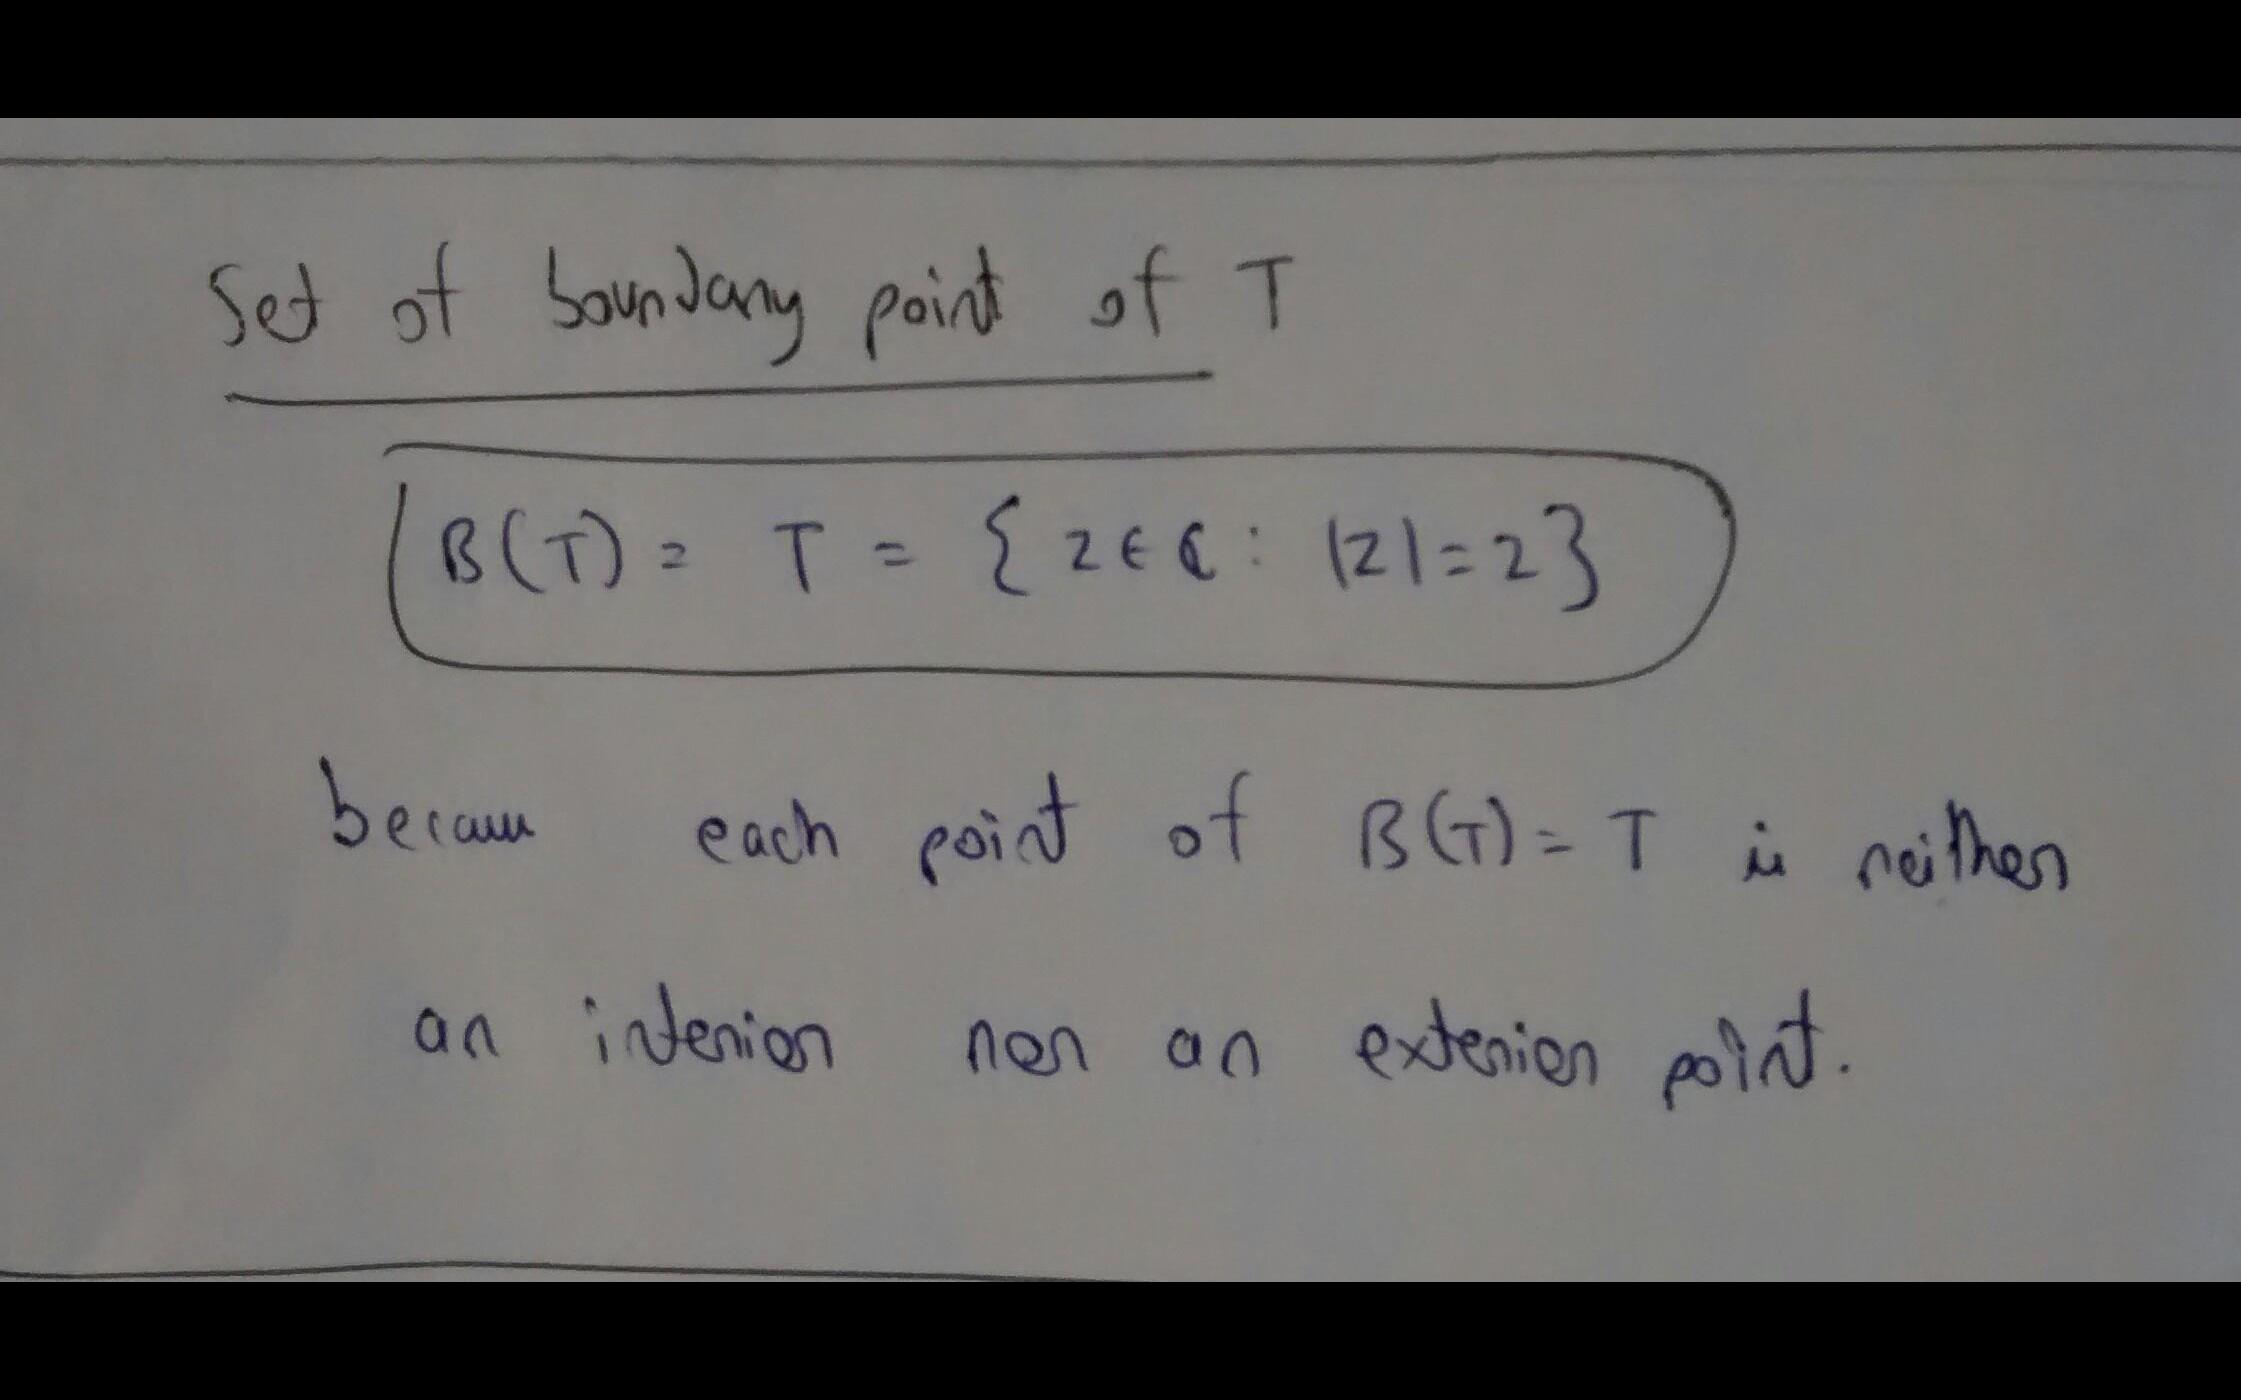 Set of boundary point of T
B(T) = T = { z ∈ ℂ : |z| = 2 }
because each point of B(T) = T is neither
an interior nor an exterior point.